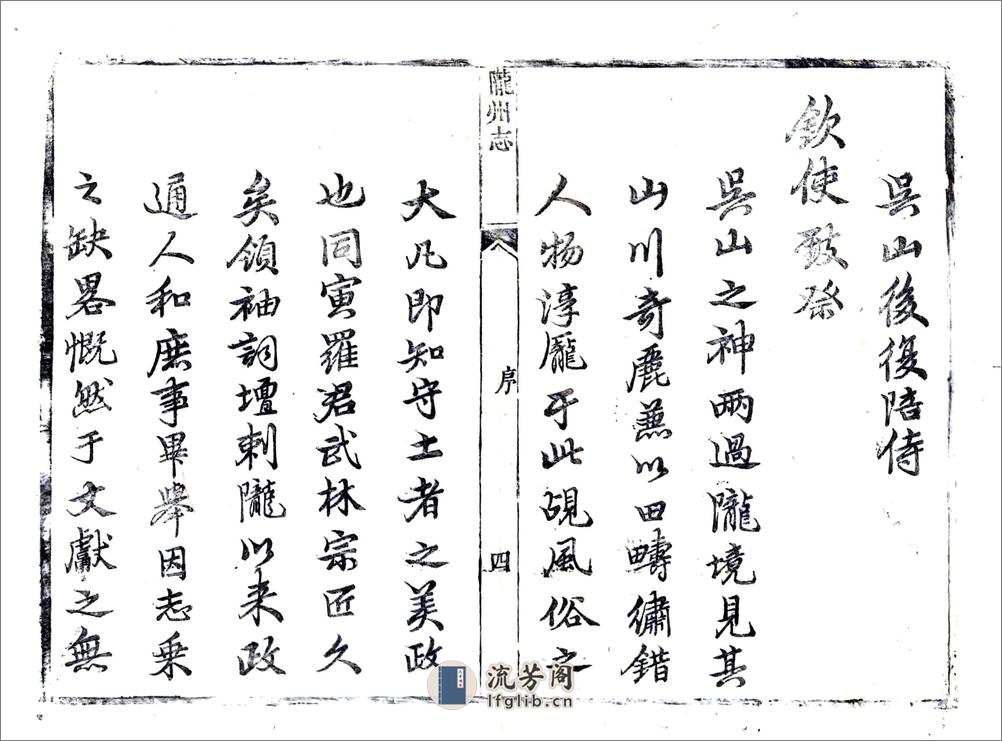 吳山後復陪侍
欽使致祭
吳山之神兩過隴境見其
山川奇麗兼以田疇繡錯
人物淳龐于此覘風俗之
隴州志
序
四
大凡即知守土者之美政
也同寅羅君武林宗匠久
矣領袖詞壇刺隴以來政
通人和庶事畢舉因志乘
之缺畧慨然于文獻之無
流芳阁
lfglib.cn